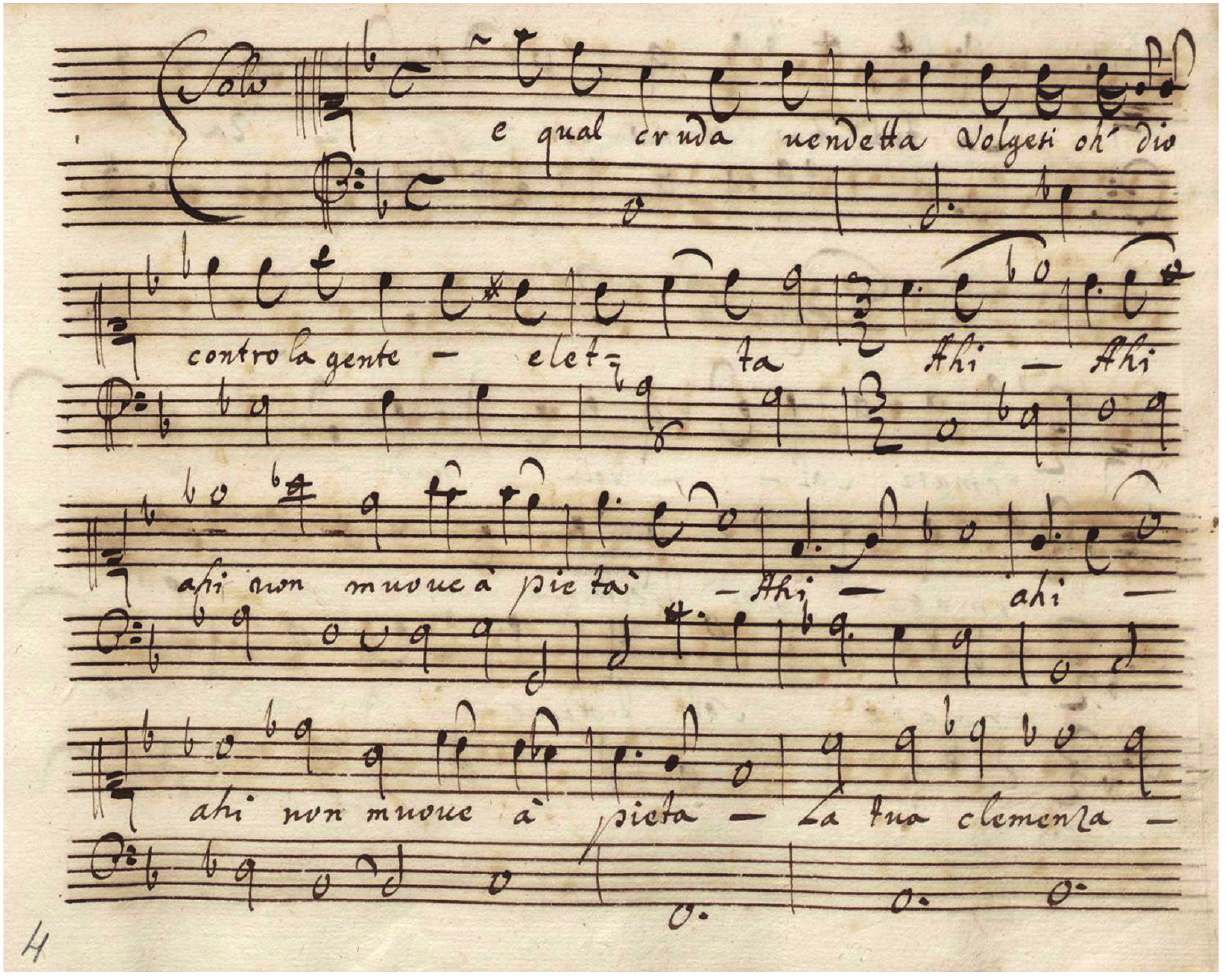 Solo
e qual cruda vendetta Volgesi oh' dio
contro la gente - elet= ta Ahi - Ahi
ahi non muove à pietà - Ahi - ahi -
ahi non muove à pieta - La tua clemenza -
4